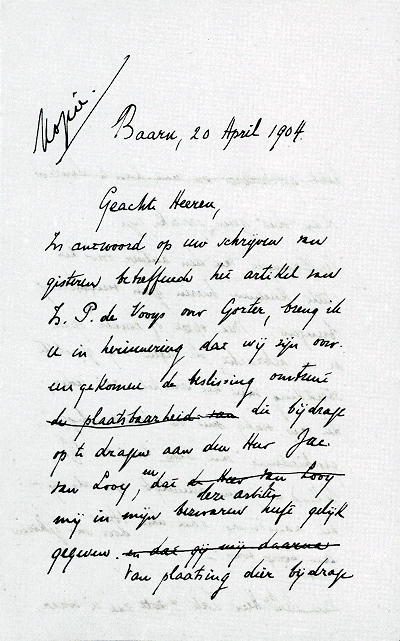 Kopie.
Baarn, 20 April 1904.
Geachte Heeren,
In antwoord op uw schrijven van
gisteren betreffende het artikel van
Is. P. de Vooys over Gorter, breng ik
U in herinnering dat wij zijn over-
eengekomen de beslissing omtrent
de plaatsbaarheid van die bijdrage
op te dragen aan den Heer Jac.
van Looy, en dat de Heer van Looy
deze arbiter
mij in mijn bezwaren heeft gelijk
gegeven. en dat gij mij daarna
Van plaatsing dier bijdrage